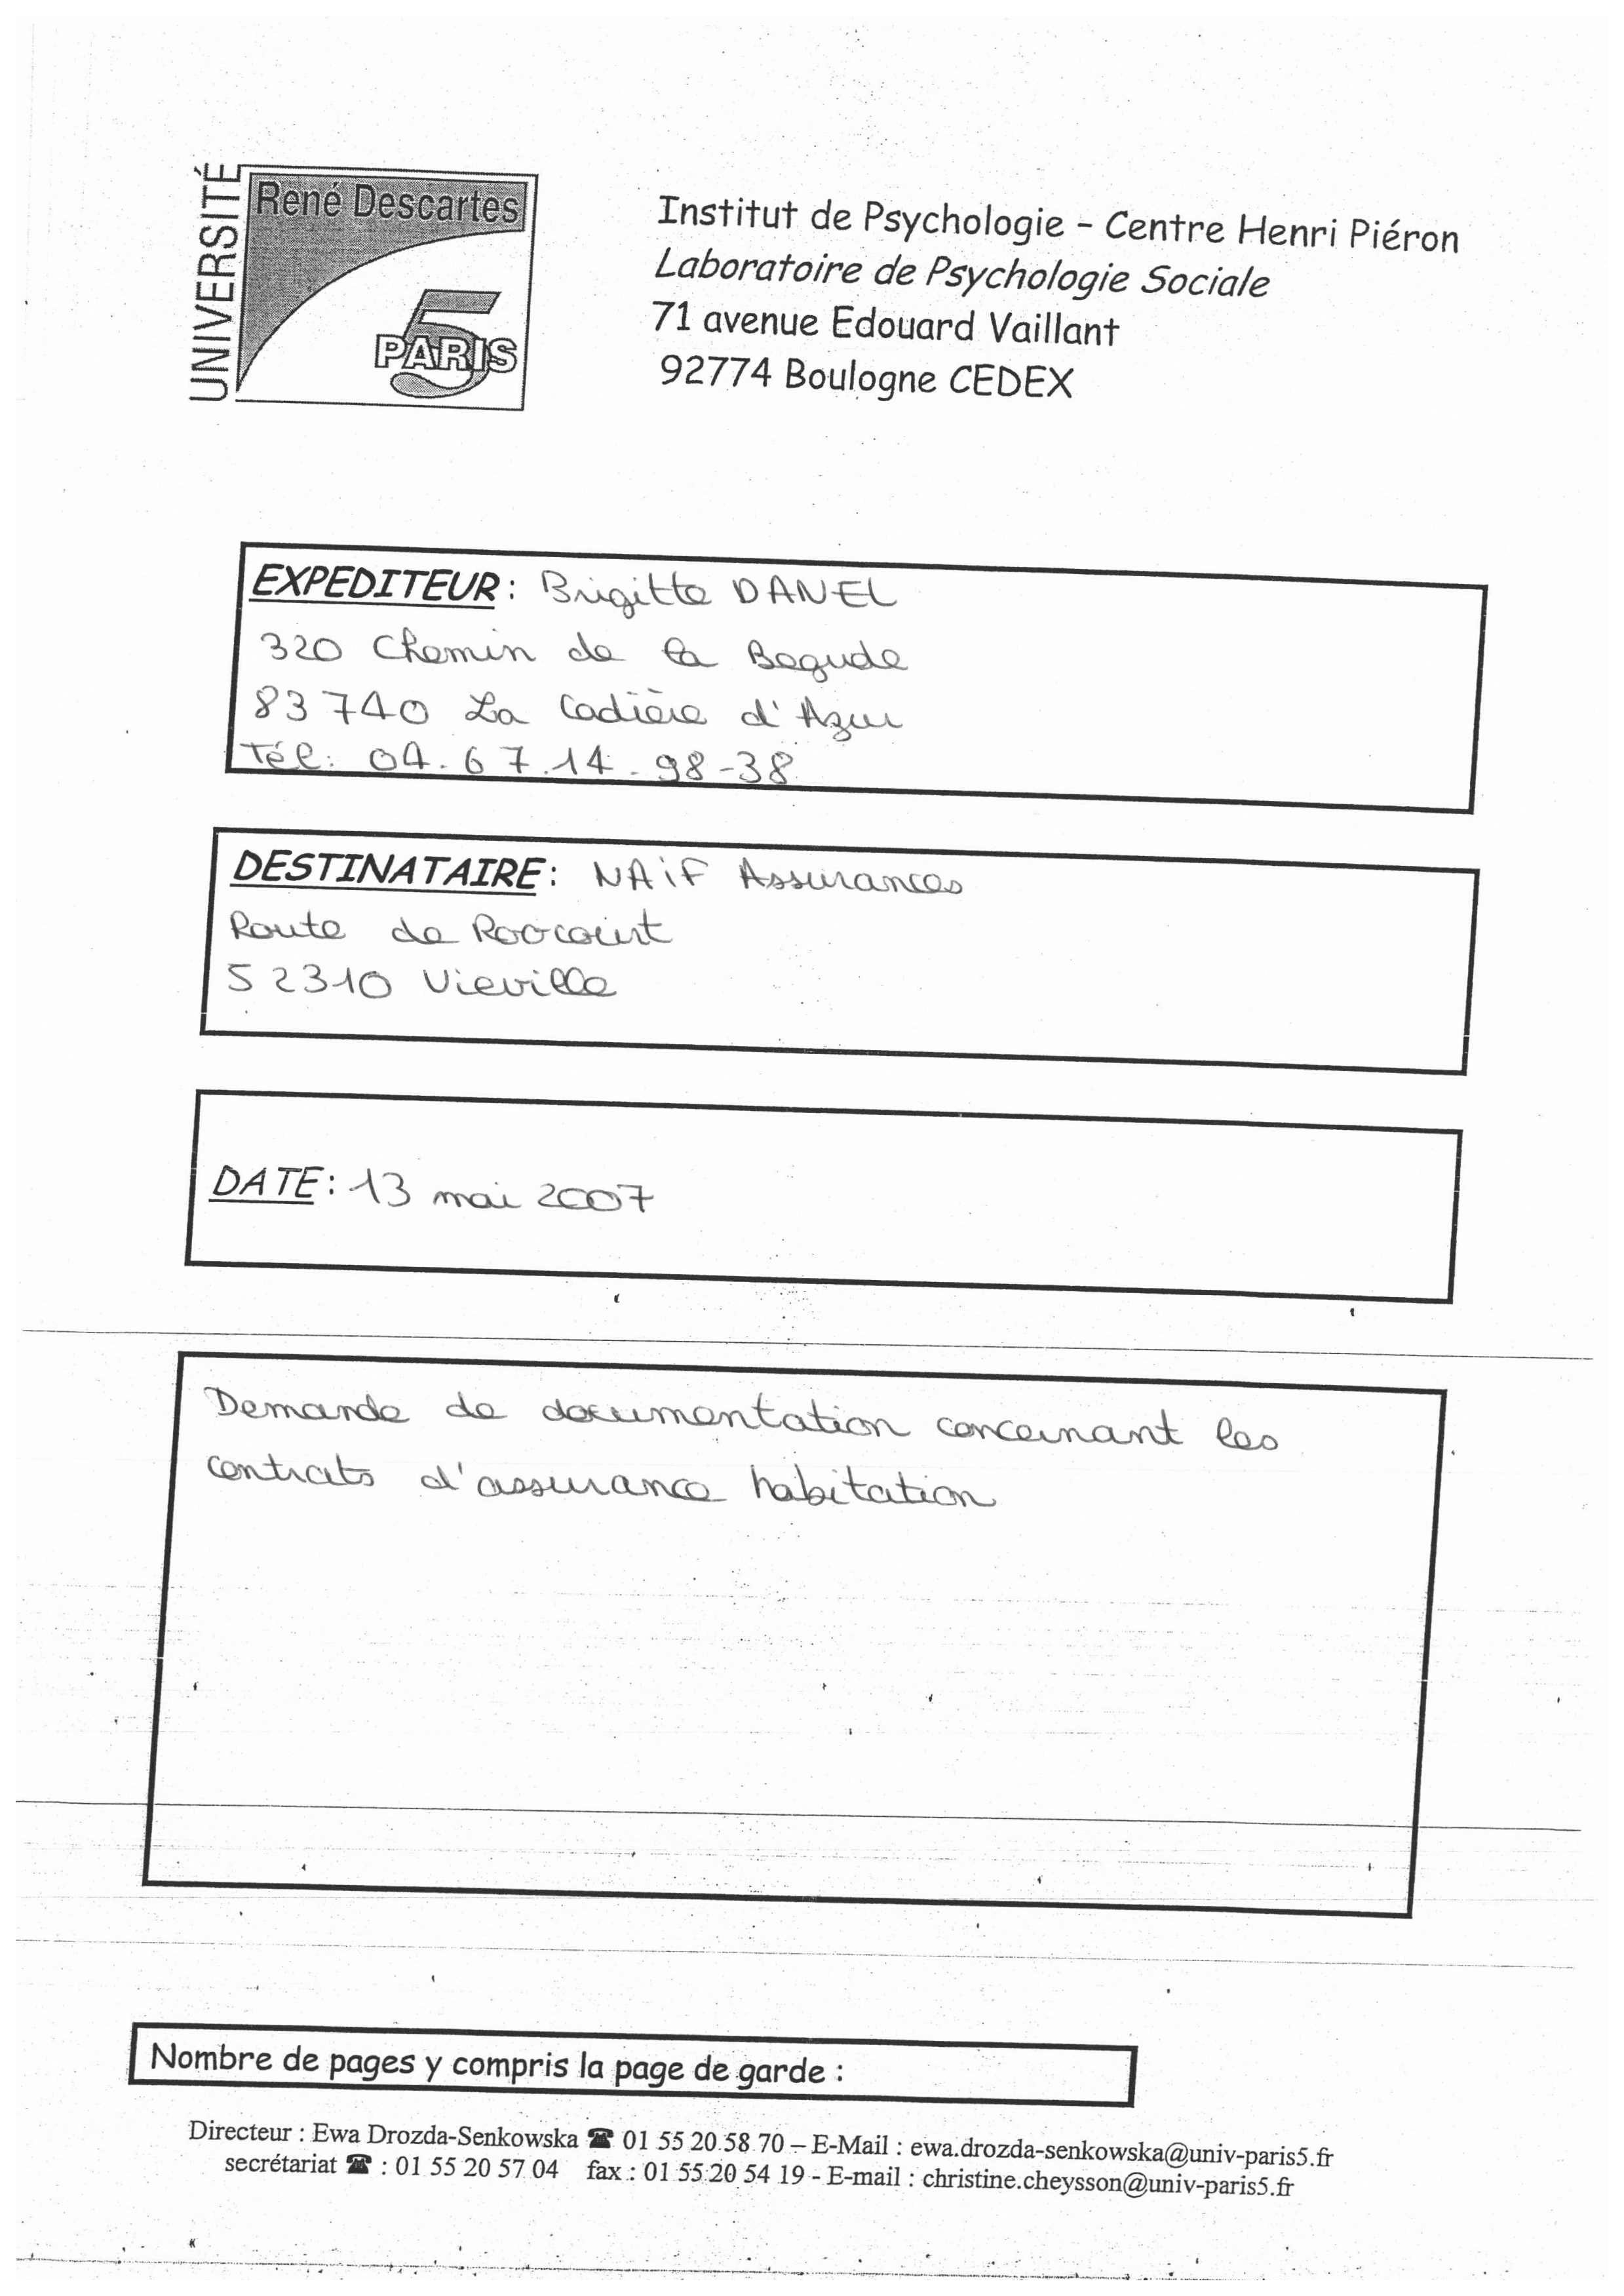 UNIVERSITÉ
René Descartes
5
PARIS
Institut de Psychologie - Centre Henri Piéron
Laboratoire de Psychologie Sociale
71 avenue Edouard Vaillant
92774 Boulogne CEDEX
EXPEDITEUR: Brigitte DANEL
320 Chemin de la Begude
83740 La Cadière d'Azur
Tél: 04.67.14.98-38
DESTINATAIRE: NAiF Assurances
Route de Roocourt
52310 Vieville
DATE: 13 mai 2007
Demande de documentation concernant les
contrats d'assurance habitation
Nombre de pages y compris la page de garde :
Directeur : Ewa Drozda-Senkowska ☎ 01 55 20 58 70 – E-Mail : ewa.drozda-senkowska@univ-paris5.fr
secrétariat ☎ : 01 55 20 57 04 fax : 01 55 20 54 19 - E-mail : christine.cheysson@univ-paris5.fr